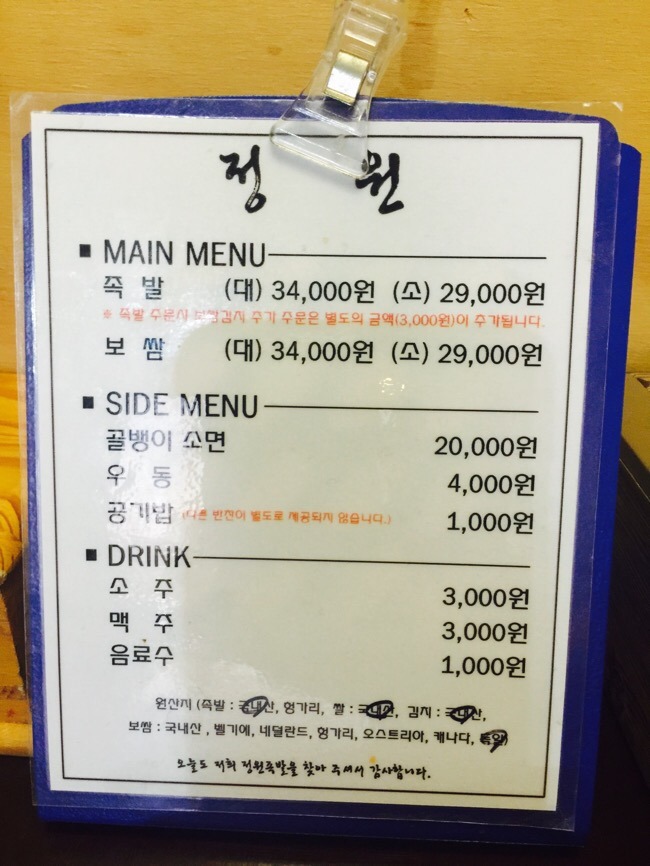 정 원
■ MAIN MENU
족 발 (대) 34,000원 (소) 29,000원
※ 족발 주문시 보쌈김치 추가 주문은 별도의 금액(3,000원)이 추가됩니다.
보 쌈 (대) 34,000원 (소) 29,000원
■ SIDE MENU
골뱅이 소면 20,000원
우 동 4,000원
공기밥 (다른 반찬이 별도로 제공되지 않습니다.) 1,000원
■ DRINK
소 주 3,000원
맥 주 3,000원
음료수 1,000원
원산지 (족발 : 국내산, 헝가리, 쌀 : 국내산, 김치 : 국내산,
보쌈 : 국내산 , 벨기에, 네덜란드, 헝가리, 오스트리아, 캐나다, 독일)
오늘도 저희 정원족발을 찾아 주셔서 감사합니다.